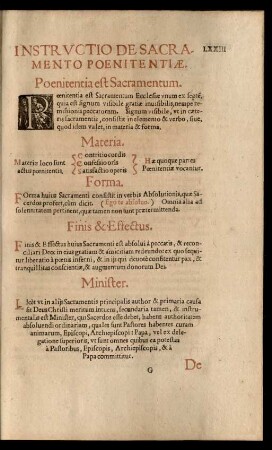 INSTRVCTIO DE SACRA-
MENTO POENITENTIÆ.
LXXIII
Poenitentia est Sacramentum.
Poenitentia est Sacramentum Ecclesiæ vnum ex septē,
quia est signum visibile gratiæ inuisibilis, nempe re-
missionis peccatorum. Signum visibile, vt in cæte-
ris sacramentis, consistit in elemento & verbo, siue,
quod idem valet, in materia & forma.
Materia.
Materiæ loco sunt actus pœnitentis,
Contritio cordis
Confessio oris
Satisfactio operis
Hæ quoque partes Pœnitentiæ vocantur.
Forma.
Forma huius Sacramenti consistit in verbis Absolutionis, quæ Sa-
cerdos profert, dum dicit: (Ego te absoluo.) Omnia alia ad
solennitatem pertinent, quæ tamen non sunt prætermittenda.
Finis & Effectus.
Finis & Effectus huius Sacramenti est absolui à peccatis, & reconci-
liari Deo in eius gratiam & amicitiam redeundo: ex quo sequi-
tur liberatio à pœna inferni, & in ijs qui deuotè confitentur pax, &
tranquillitas conscientiæ, & augmentum donorum Dei.
Minister.
Licet vt in alijs Sacramentis principalis author & primaria causa
sit Deus Christi meritum intuens, secundaria tamen, & instru-
mentalis est Minister, qui Sacerdos esse debet, habens authoritatem
absoluendi ordinariam, quales sunt Pastores habentes curam
animarum, Episcopi, Archiepiscopi, Papa, vel ex dele-
gatione superioris, vt sunt omnes quibus ea potestas
à Pastoribus, Episcopis, Archiepiscopis, & à
Papa committitur.
G
De